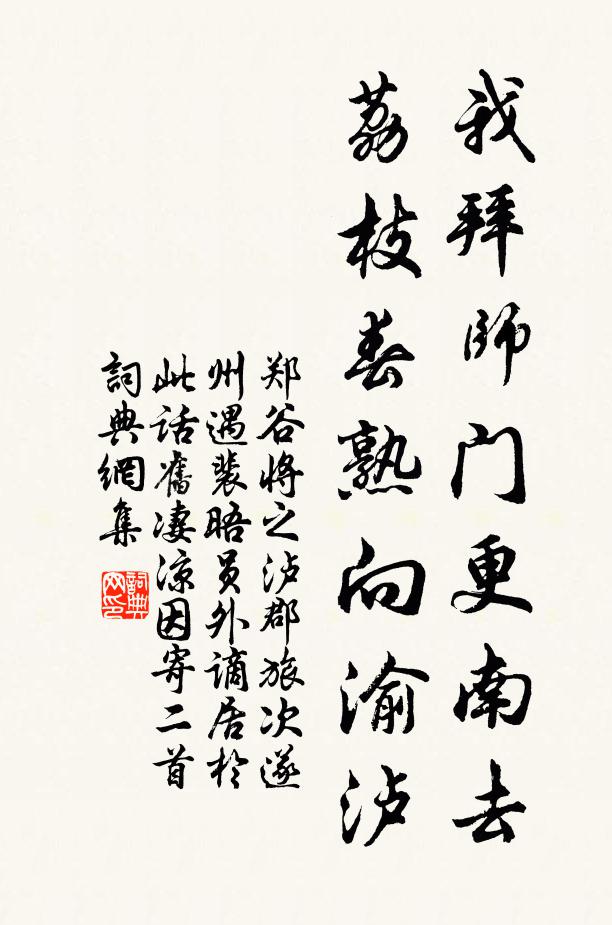 我拜師门更南去
荔枝春熟向渝泸
郑谷将之泸郡旅次遂
州遇裴晤员外谪居於
此话舊凄凉因寄二首
詞典網集
詞典
网印